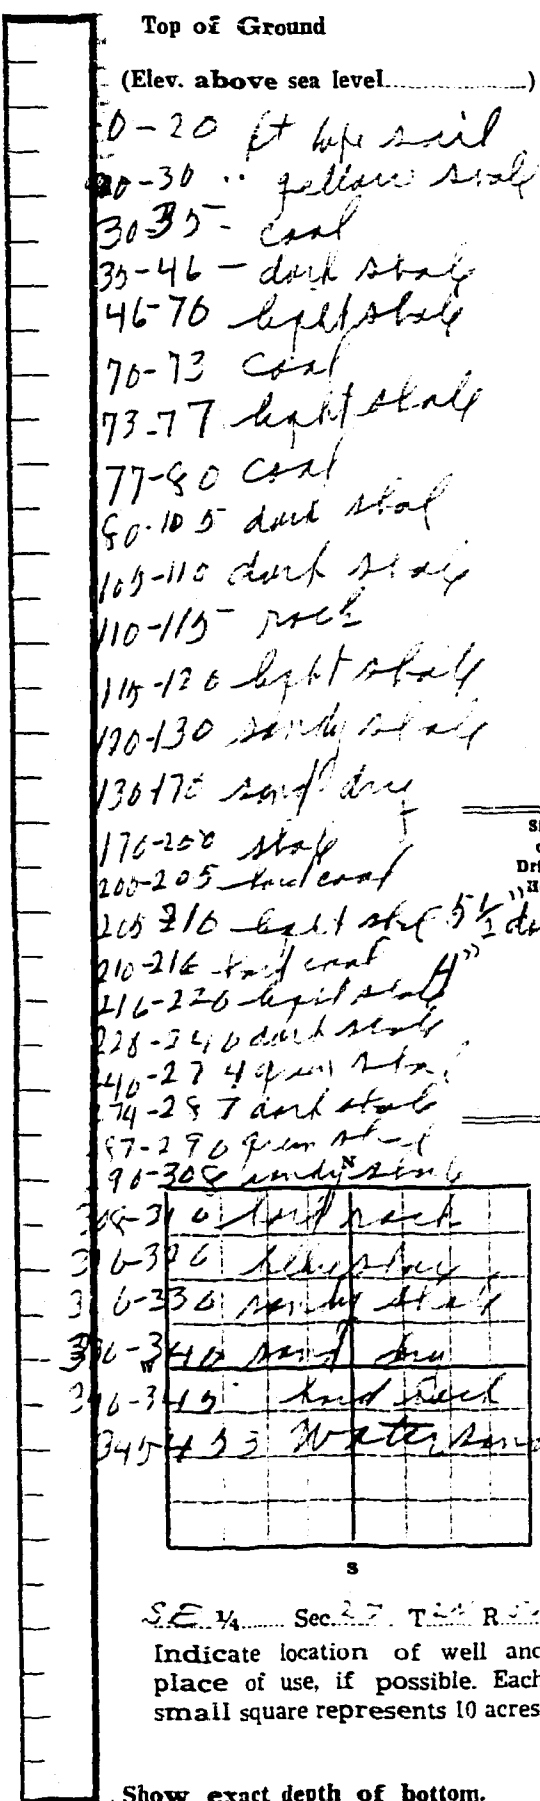 Top of Ground
(Elev. above sea level...............)
0-20 ft tope soil
20-30 " yellow shale
30-35 - coal
35-46 - dark shale
46-70 light shale
70-73 coal
73-77 light shale
77-80 coal
80-105 dark shal
105-110 dark shale
110-115 rock
115-120 light shale
120-130 sandy shale
130-170 sand dry
170-200 shale
200-205 hard coal
205 210 light shale 5 1/2" d
210-216 hard coal 4"
216-228 light shale
228-240 dark shale
240-274 green shal
274-287 dark shale
287-290 green shal
290-308 sandy shale
N
308-310 hard rock
310-326 blue shale
326-330 sandy shale
330-340 sand dry
W
340-345 hard rock
345 453 Water sand
S
S.E. 1/4 Sec. 27 T R
Indicate location of well and
place of use, if possible. Each
small square represents 10 acres
Show exact depth of bottom.